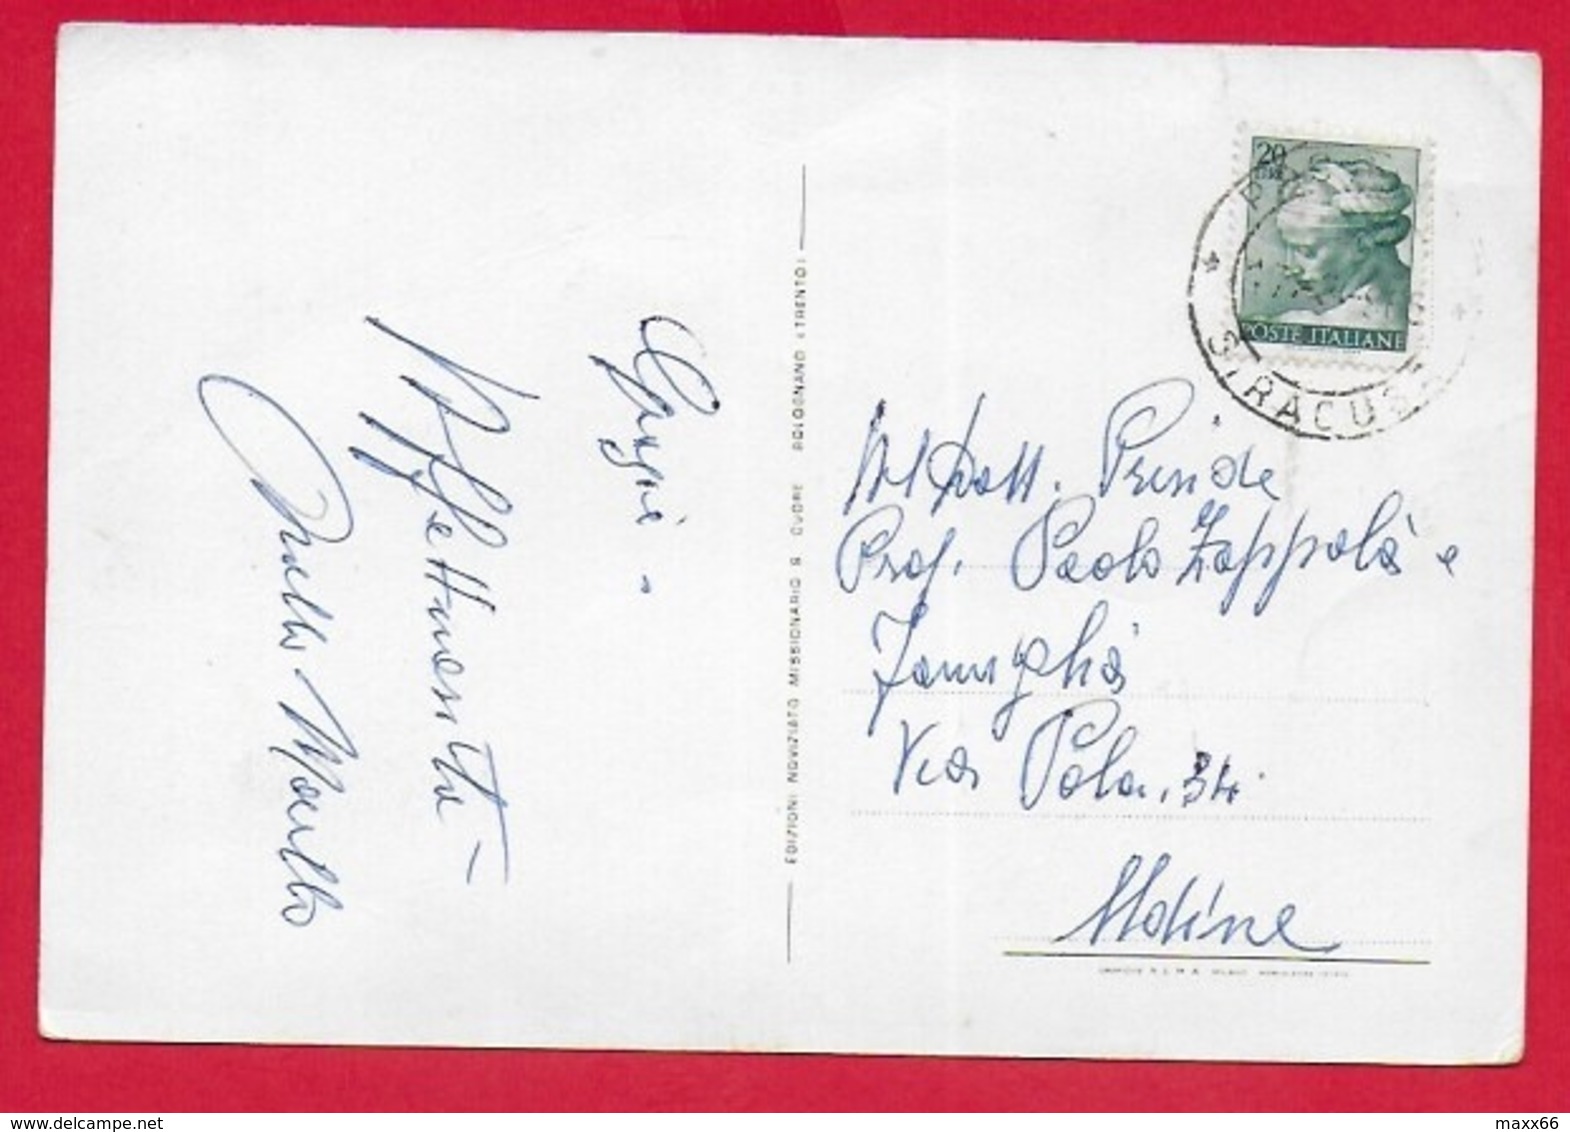 Grazie.
Affettuosità -
Nello Morello
EDIZIONI NOVIZIATO MISSIONARIO S. CUORE BOLOGNANO (TRENTO)
20
LIRE
POSTE ITALIANE
SIRACUS
Al Dott. Preside
Prof. Paolo Zappalà e
Famiglia
Via Pola, 34.
Udine
maxx66